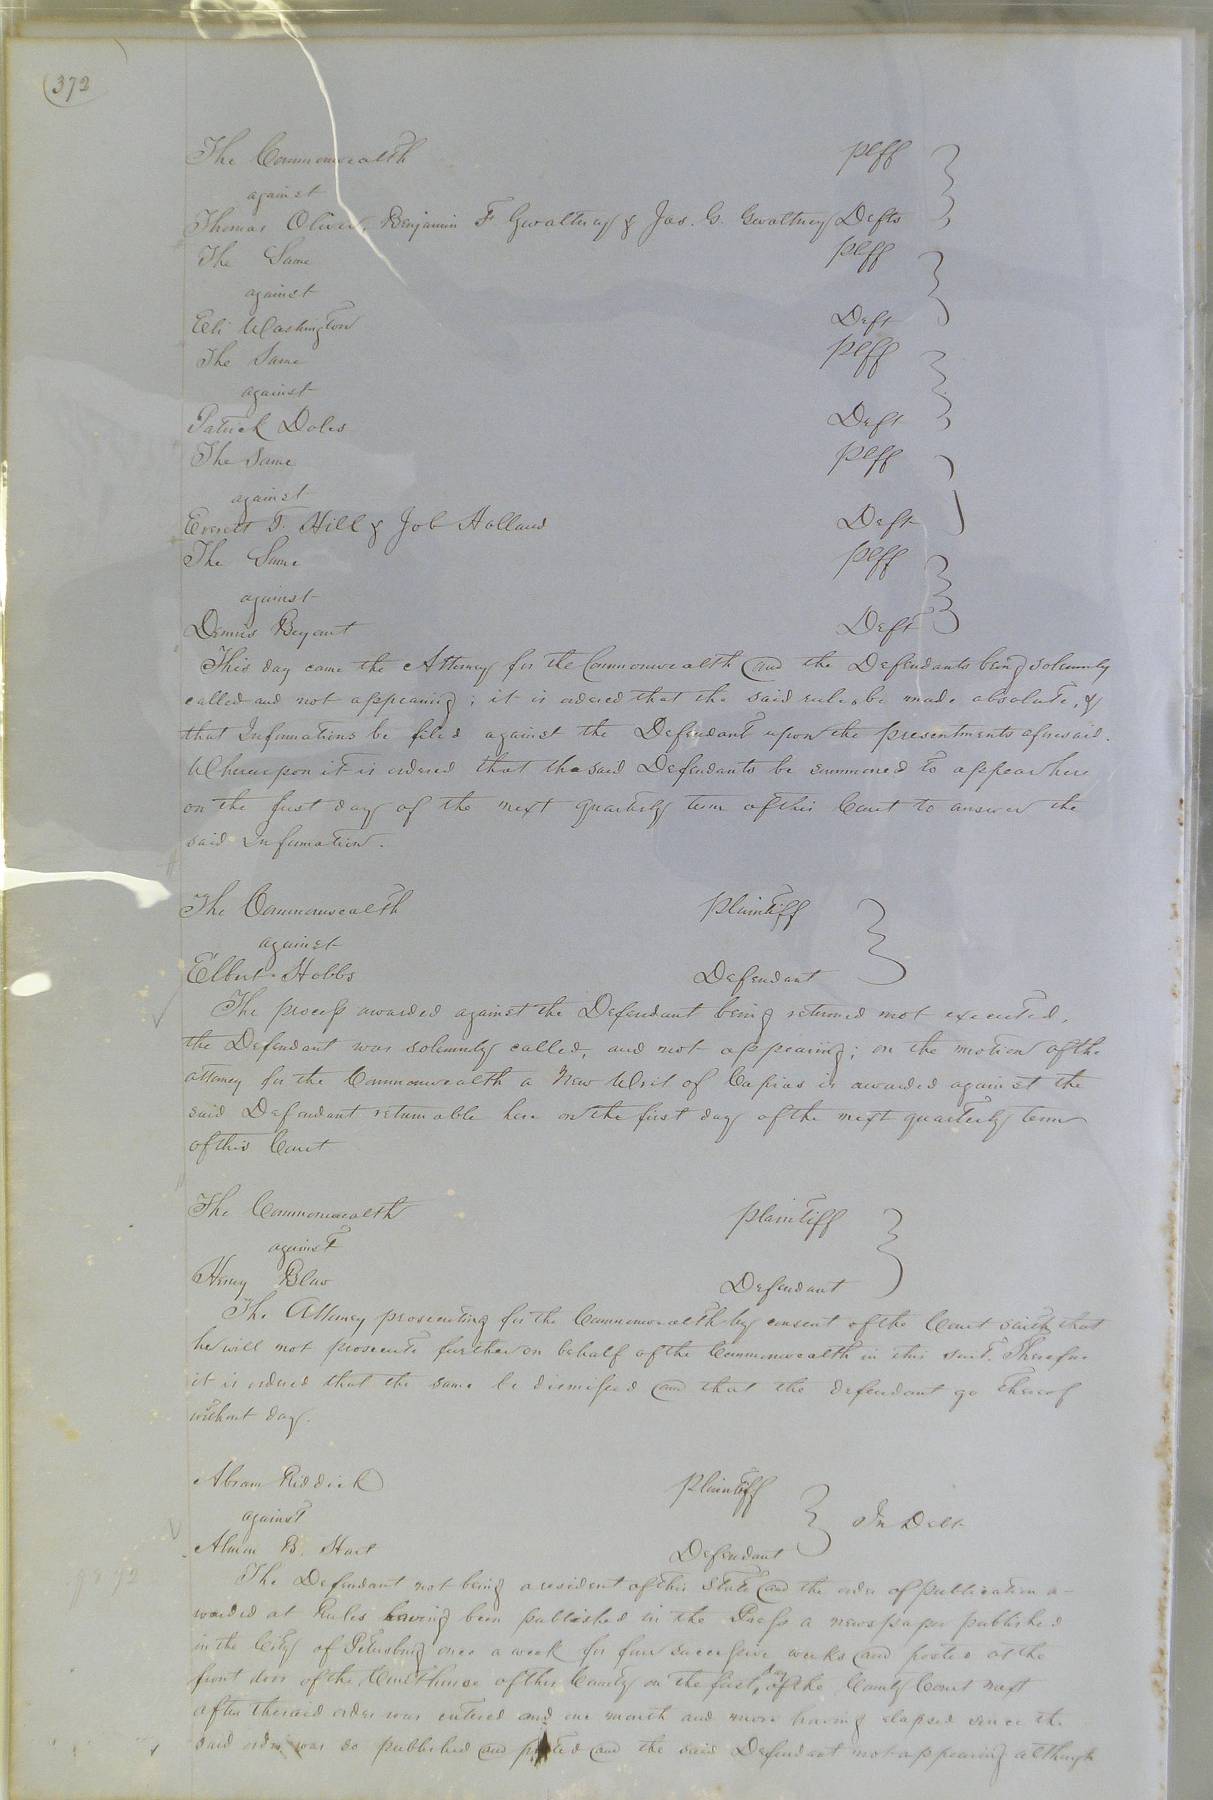 372
The Commonwealth plff
against
Thomas Oliver, Benjamin F. Gwaltney & Jas. G. Gwaltney Defts
The Same plff
against
Eli Washington Deft
The Same plff
against
Patrick Doles Deft
The Same plff
against
Everett T. Hill & Job Holland Deft
The Same plff
against
Dennis Bryant Deft
This day came the Attorney for the Commonwealth and the Defendants being solemnly
called and not appearing; it is ordered that the said rules be made absolute, &
that Informations be filed against the Defendant upon the presentments aforesaid.
Whereupon it is ordered that the said Defendants be summoned to appear here
on the first day of the next quarterly term of this Court to answer the
said Information.
The Commonwealth Plaintiff
against
Elbert Hobbs Defendant
The process awarded against the Defendant being returned not executed,
the Defendant was solemnly called, and not appearing; on the motion of the
attorney for the Commonwealth a New Writ of Capias is awarded against the
said Defendant returnable here on the first day of the next quarterly term
of this Court
The Commonwealth plaintiff
against
Henry Blow Defendant
The Attorney prosecuting for the Commonwealth by consent of the Court saith that
he will not prosecute further on behalf of the Commonwealth in this suit. Therefore
it is ordered that the same be dismissed and that the defendant go thereof
without day.
Abram Riddick Plaintiff
against In Debt
B. Hart Defendant
The Defendant not being a resident of this State and the order of publication a-
warded at Rules having been published in the Press a newspaper published
in the City of Petersburg once a week for four successive weeks and posted at the
front door of the Courthouse of this County on the first day of the County Court next
after the said order was entered and one month and more having elapsed since the
said order was so published and posted and the said Defendant not appearing although